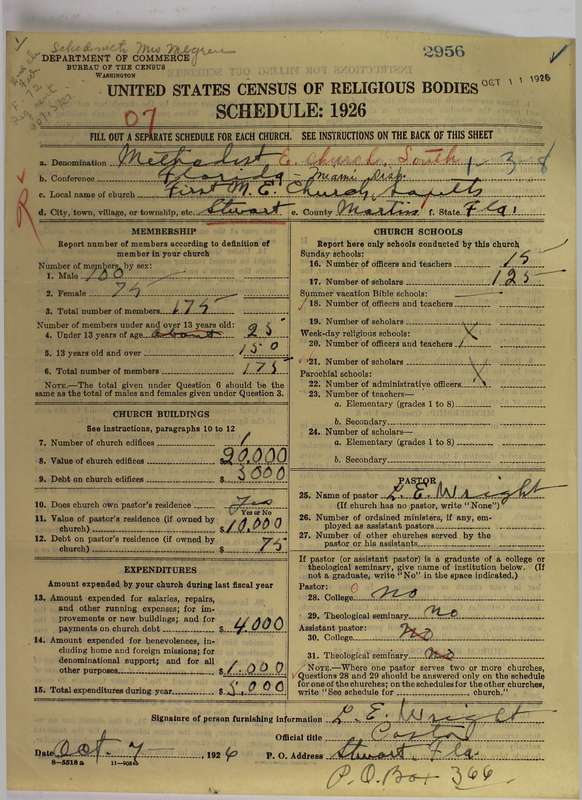 Sched with Mrs Megren
2956
DEPARTMENT OF COMMERCE
BUREAU OF THE CENSUS
WASHINGTON
OCT 11 1926
UNITED STATES CENSUS OF RELIGIOUS BODIES
SCHEDULE: 1926
07
FILL OUT A SEPARATE SCHEDULE FOR EACH CHURCH. SEE INSTRUCTIONS ON THE BACK OF THIS SHEET
a. Denomination Methodist E. Church, South 1-3-8
b. Conference Florida - Miami Disp.
c. Local name of church First M. E. Church, South
d. City, town, village, or township, etc. Stuart e. County Martin f. State Fla.
MEMBERSHIP
Report number of members according to definition of member in your church
Number of members, by sex:
1. Male 100
2. Female 75
3. Total number of members 175
Number of members under and over 13 years old:
4. Under 13 years of age about 25
5. 13 years old and over 150
6. Total number of members 175
NOTE.—The total given under Question 6 should be the same as the total of males and females given under Question 3.
CHURCH BUILDINGS
See instructions, paragraphs 10 to 12
7. Number of church edifices 1
8. Value of church edifices $20,000
9. Debt on church edifices $3000
10. Does church own pastor's residence Yes
Yes or No
11. Value of pastor's residence (if owned by church) $10,000
12. Debt on pastor's residence (if owned by church) $75
EXPENDITURES
Amount expended by your church during last fiscal year
13. Amount expended for salaries, repairs, and other running expenses; for improvements or new buildings; and for payments on church debt $4,000
14. Amount expended for benevolences, including home and foreign missions; for denominational support; and for all other purposes $1,000
15. Total expenditures during year $5,000
CHURCH SCHOOLS
Report here only schools conducted by this church
Sunday schools:
16. Number of officers and teachers 15
17. Number of scholars 125
Summer vacation Bible schools:
18. Number of officers and teachers
19. Number of scholars
Week-day religious schools:
20. Number of officers and teachers X
21. Number of scholars
Parochial schools:
22. Number of administrative officers X
23. Number of teachers—
a. Elementary (grades 1 to 8)
b. Secondary
24. Number of scholars—
a. Elementary (grades 1 to 8)
b. Secondary
PASTOR
25. Name of pastor L. E. Wright
(If church has no pastor, write "None")
26. Number of ordained ministers, if any, employed as assistant pastors
27. Number of other churches served by the pastor or his assistants
If pastor (or assistant pastor) is a graduate of a college or theological seminary, give name of institution below. (If not a graduate, write "No" in the space indicated.)
Pastor:
28. College 0 no
29. Theological seminary no
Assistant pastor:
30. College no
31. Theological seminary no
NOTE.—Where one pastor serves two or more churches, Questions 28 and 29 should be answered only on the schedule for one of the churches; on the schedules for the other churches, write "See schedule for church."
Signature of person furnishing information L. E. Wright
Official title Pastor
Date Oct. 7, 1926 P. O. Address Stuart, Fla.
8—5518a 11—9054b
P.O. Box 366.